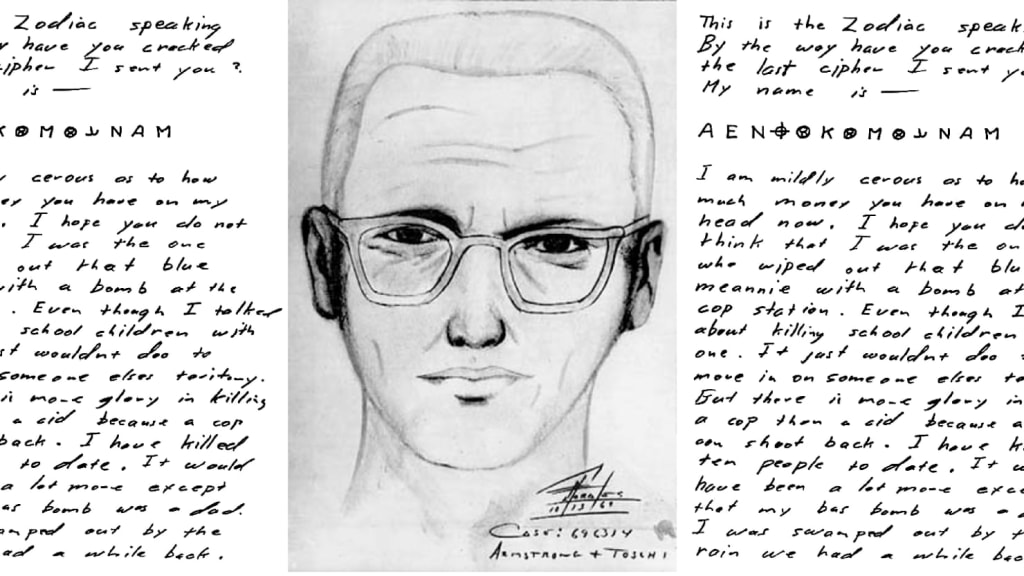 Zodiac speaking
have you cracked
ipher I sent you ?
is —
K ⊗ M ⊗ ⅃ N A M
cerous as to how
ey you have on my
. I hope you do not
I was the one
out that blue
with a bomb at the
. Even though I talked
school children with
st wouldnt doo to
someone elses teritory.
is more glory in killing
a cid because a cop
back. I have killed
to date. It would
a lot more except
as bomb was a dud.
amped out by the
ad a while back.
10/13/69
Case: 696314
Armstrong + Toschi
This is the Zodiac speak
By the way have you crack
the last cipher I sent yo
My name is —
A E N ⌖ ⊗ K ⊗ M ⊗ ⅃ N A M
I am mildly cerous as to ho
much money you have on m
head now. I hope you do
think that I was the on
who wiped out that blu
meannie with a bomb at
cop station. Even though I
about killing school children
one. It just wouldnt doo t
move in on someone elses te
But there is more glory in
a cop than a cid because a
can shoot back. I have ki
ten people to date. It w
have been a lot more exce
that my bas bomb was a d
I was swamped out by t
rain we had a while bac